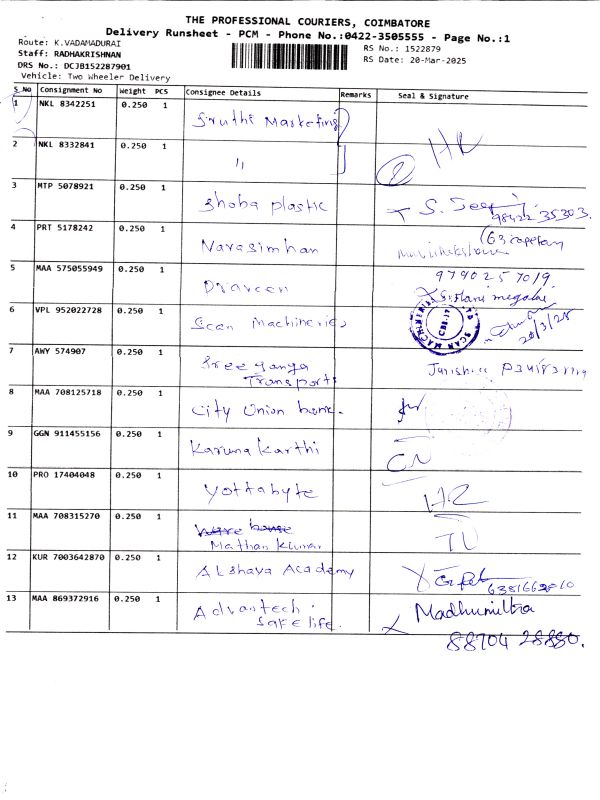 THE PROFESSIONAL COURIERS, COIMBATORE
Delivery Runsheet - PCM - Phone No.:0422-3505555 - Page No.:1
Route: K.VADAMADURAI
RS No.: 1522879
Staff: RADHAKRISHNAN
RS Date: 20-Mar-2025
DRS No.: DCJB152287901
Vehicle: Two Wheeler Delivery
S No Consignment No Weight PCS Consignee Details Remarks Seal & Signature
1 NKL 8342251 0.250 1 Sruthi Marketing
2 NKL 8332841 0.250 1 " 2 HR
3 MTP 5078921 0.250 1 Shoba plastic S. 98422 35303
4 PRT 5178242 0.250 1 Narasimhan
5 MAA 575055949 0.250 1 Praveen 9790257019.
6 VPL 952022728 0.250 1 Scan Machineries SCAN MACHINERIES LTD CBE-17 20/3/25
7 AWY 574907 0.250 1 Sree ganga
Transports
8 MAA 708125718 0.250 1 City Union bank.
9 GGN 911455156 0.250 1 Karuna Karthi
10 PRO 17404048 0.250 1 Yottabyte HR
11 MAA 708315270 0.250 1 ware house
Mathan Kumar
12 KUR 7003642870 0.250 1 Akshaya Academy
13 MAA 869372916 0.250 1 Advantech Madhumitha
Safe life.
88704 28880.